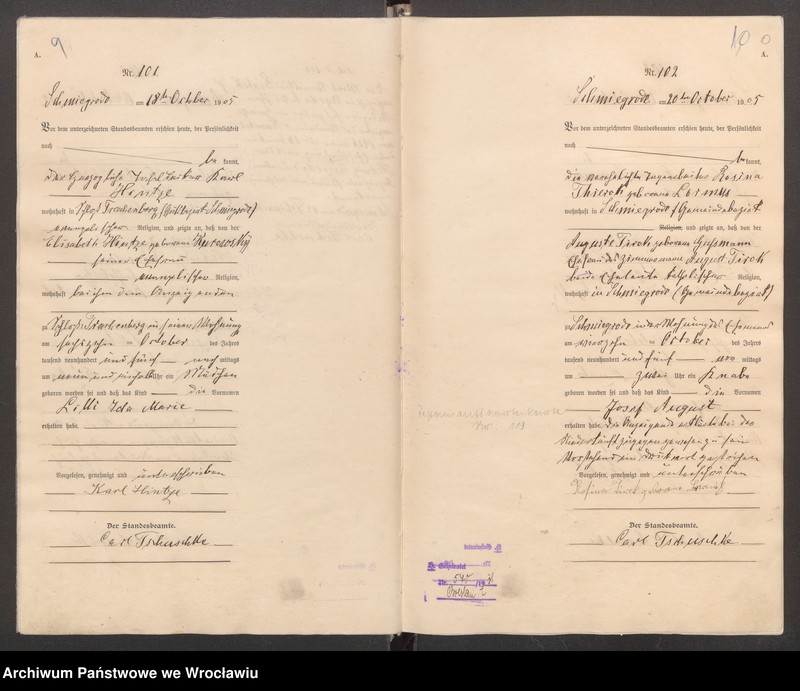 9
A.
Nr. 101
Schmiegrode am 18ten October 1905
Vor dem unterzeichneten Standesbeamten erschien heute, der Persönlichkeit
nach
be kannt,
der Herzogliche Karl
Hintze
wohnhaft in Schloß Trachenberg (Gutsbezirk Schmiegrode)
evangelischer Religion, und zeigte an, daß von der
Elisabeth Hintze geborenen
seiner Ehefrau
evangelischer Religion,
wohnhaft bei ihm dem Anzeigenden
zu Schloß Trachenberg in seiner Wohnung
am sechszehn ten October des Jahres
tausend neunhundert und fünf nach mittags
um neun und einhalb Uhr ein Mädchen
geboren worden sei und daß das Kind die Vornamen
Lilli Ida Marie
erhalten habe.
Vorgelesen, genehmigt und unterschrieben
Karl Hintze
Der Standesbeamte.
Carl Tschuschke
10
A.
Nr. 102
Schmiegrode am 20ten October 1905
Vor dem unterzeichneten Standesbeamten erschien heute, der Persönlichkeit
nach
be kannt,
die verehelichte Rosina
geborene
wohnhaft in Schmiegrode (Gemeindebezirk)
Religion, und zeigte an, daß von der
Auguste Tirok geborenen
Ehefrau des Zimmermann August Tirok
beide Eheleute katholischer Religion,
wohnhaft in Schmiegrode (Gemeindebezirk)
zu Schmiegrode in der Wohnung des Ehemanns
am vierzehn ten October des Jahres
tausend neunhundert und fünf vor mittags
um zwei Uhr ein Knabe
geboren worden sei und daß das Kind die Vornamen
Josef August
erhalten habe. Die Anzeigende erklärte bei der
Niederkunft zugegen gewesen zu sein
Vorstehend ein Druckwort gestrichen
Vorgelesen, genehmigt und unterschrieben
Rosina geborene
Der Standesbeamte.
Carl Tschuschke
Nr. 119
Nr. 545
Breslau 2
Archiwum Państwowe we Wrocławiu